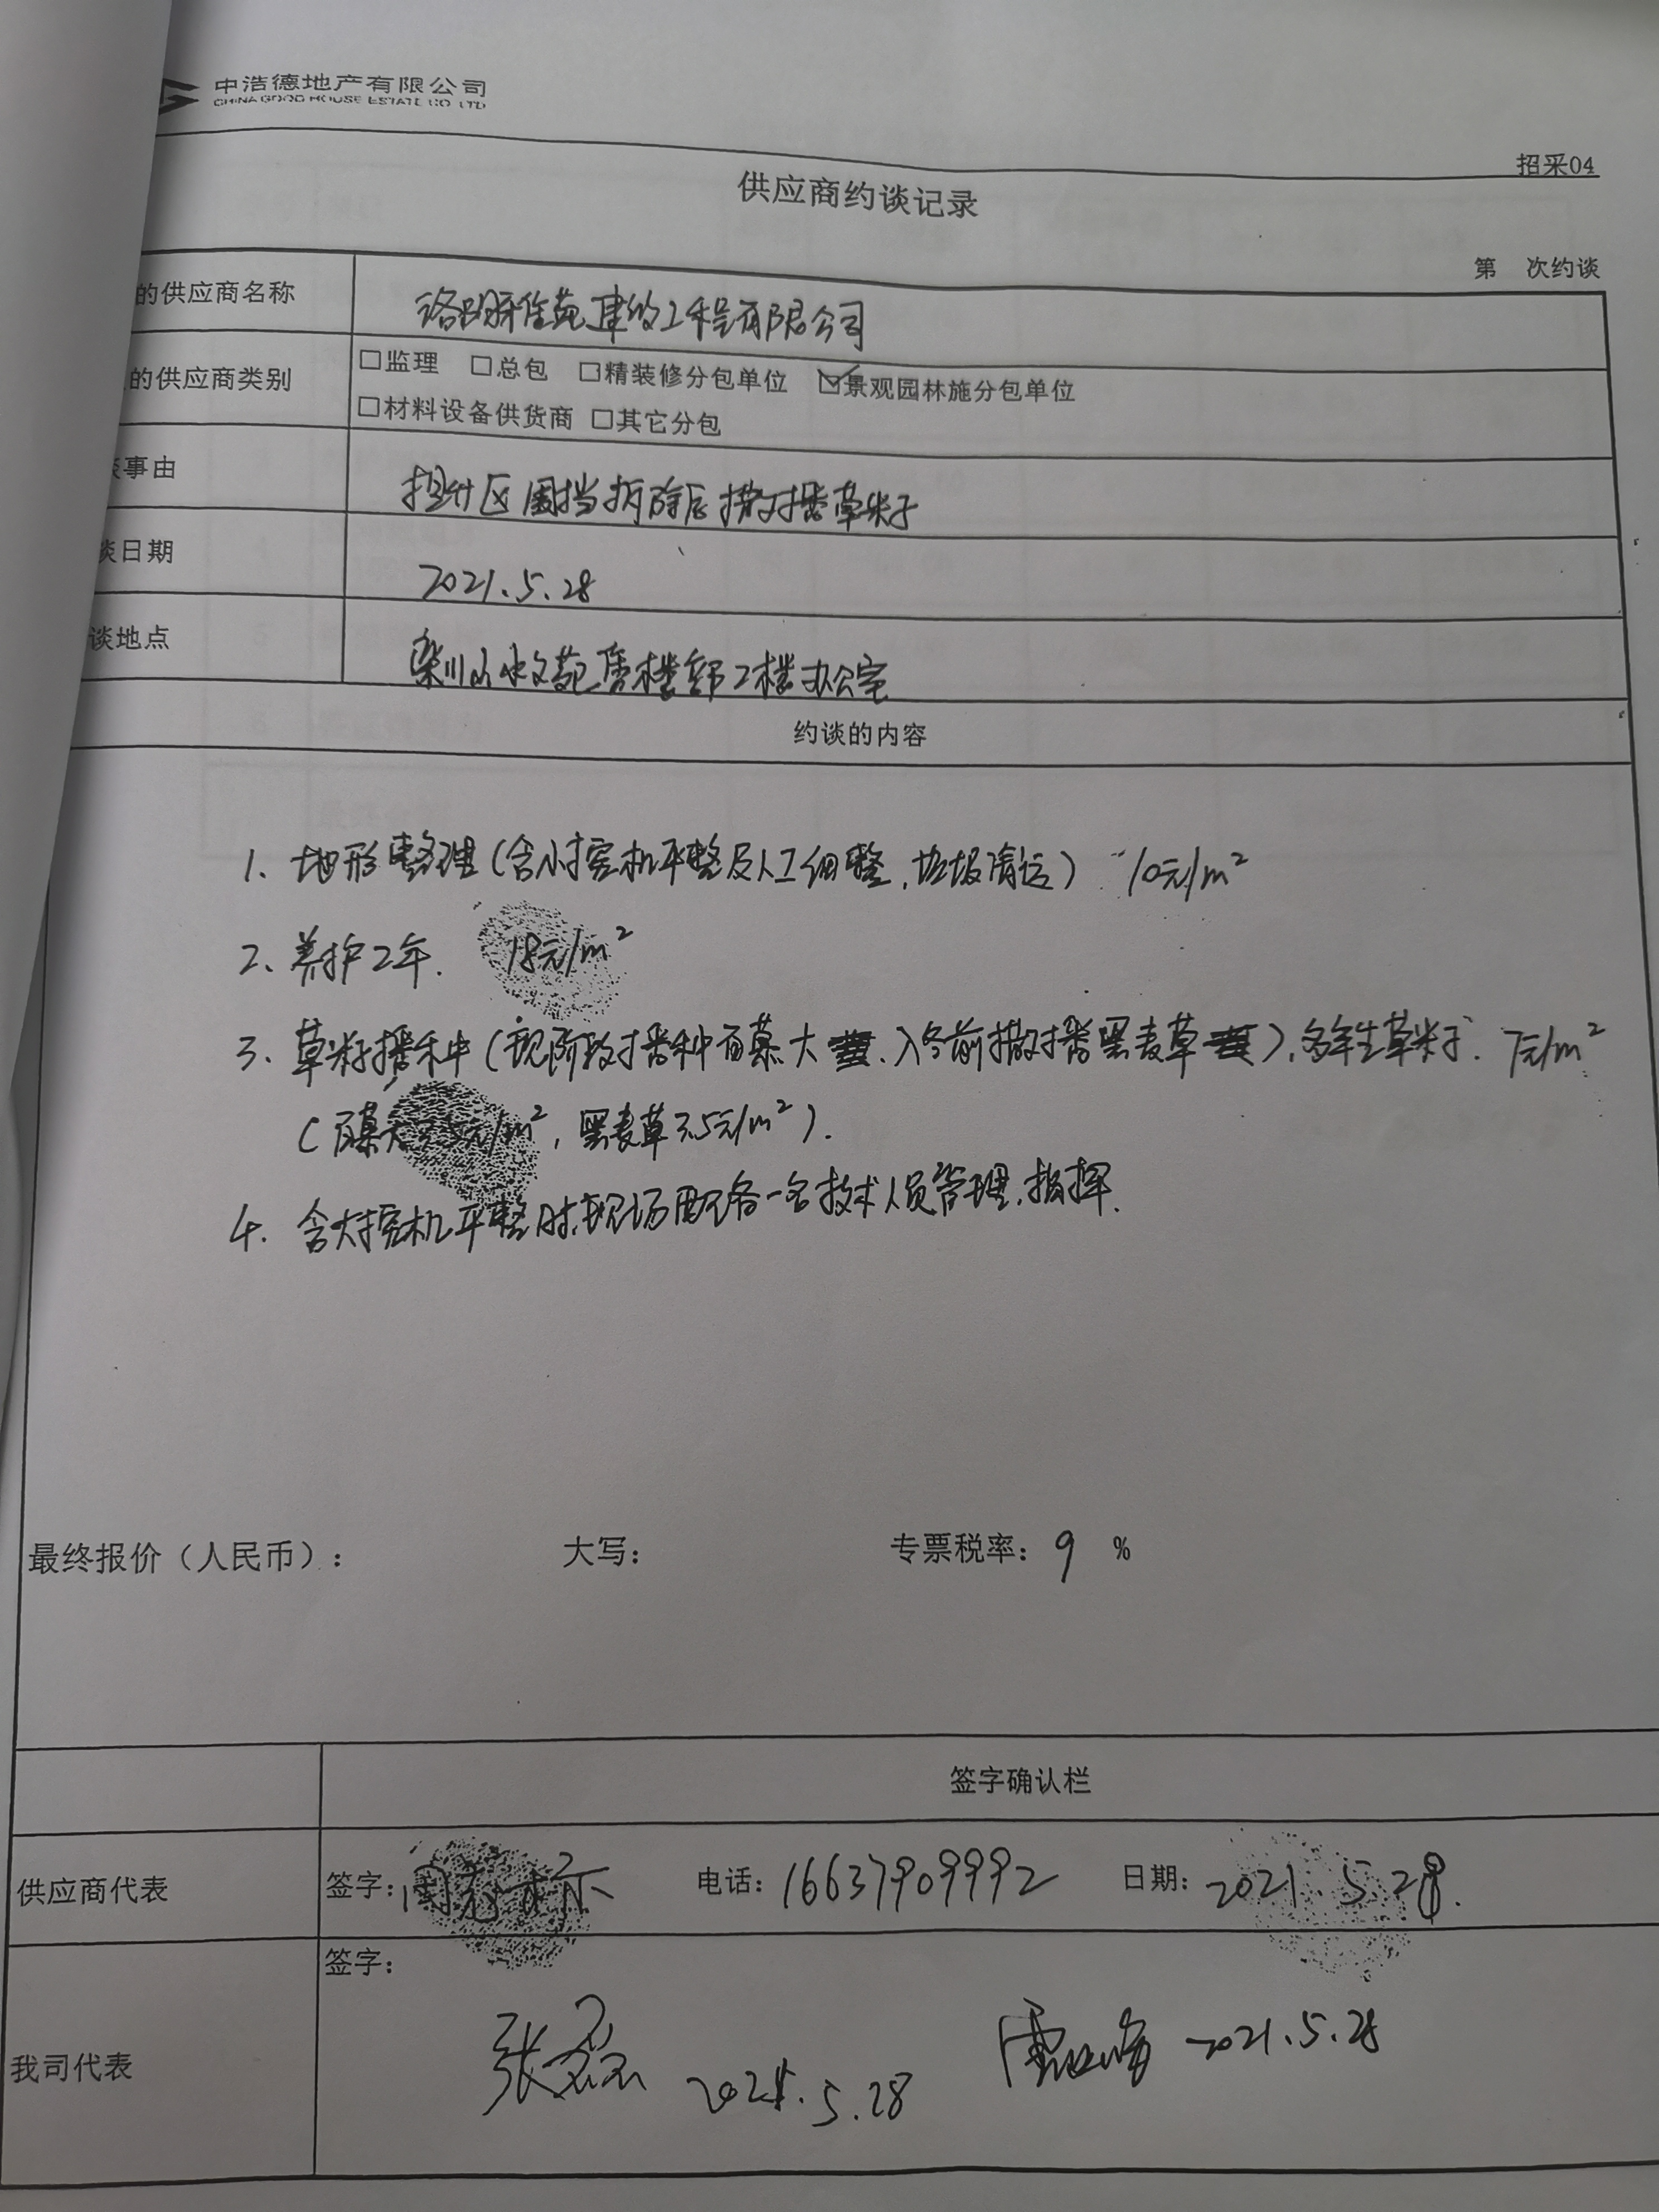 中浩德地产有限公司
CHINA GOOD HOUSE ESTATE CO LTD
招采04
供应商约谈记录
第 次约谈
的供应商名称 洛阳雅佳苑建筑工程有限公司
的供应商类别 □监理 □总包 □精装修分包单位 ☑景观园林施分包单位
□材料设备供货商 □其它分包
事由 区围挡拆除后撒播草籽
谈日期 2021.5.28
谈地点 栾川山水文苑售楼部2楼办公室
约谈的内容
1、地形整理(含小挖机平整及人工细整,垃圾清运) 10元/m²
2、养护2年. 18元/m²
3、草籽播种(现阶段播种百慕大、入冬前撒播黑麦草),多年生草籽. 7元/m²
(百慕大3.5元/m²,黑麦草3.5元/m²).
4、含大挖机平整时,现场配备一名技术人员管理、指挥.
最终报价(人民币): 大写: 专票税率: 9 %
签字确认栏
供应商代表 签字: 电话: 16637909992 日期: 2021.5.28.
签字:
我司代表 张 2021.5.28 2021.5.28